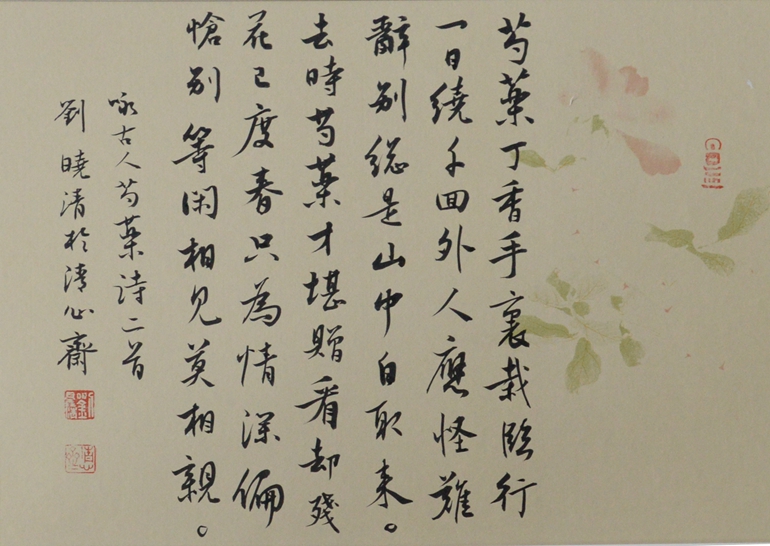 芍藥丁香手裏栽臨行
一日繞千回外人應怪難
辭别總是山中自取來。
去時芍藥才堪贈看却殘
花已度春只為情深偏
愴别等闲相見莫相親。
咏古人芍藥诗二首
劉曉清於清心齋